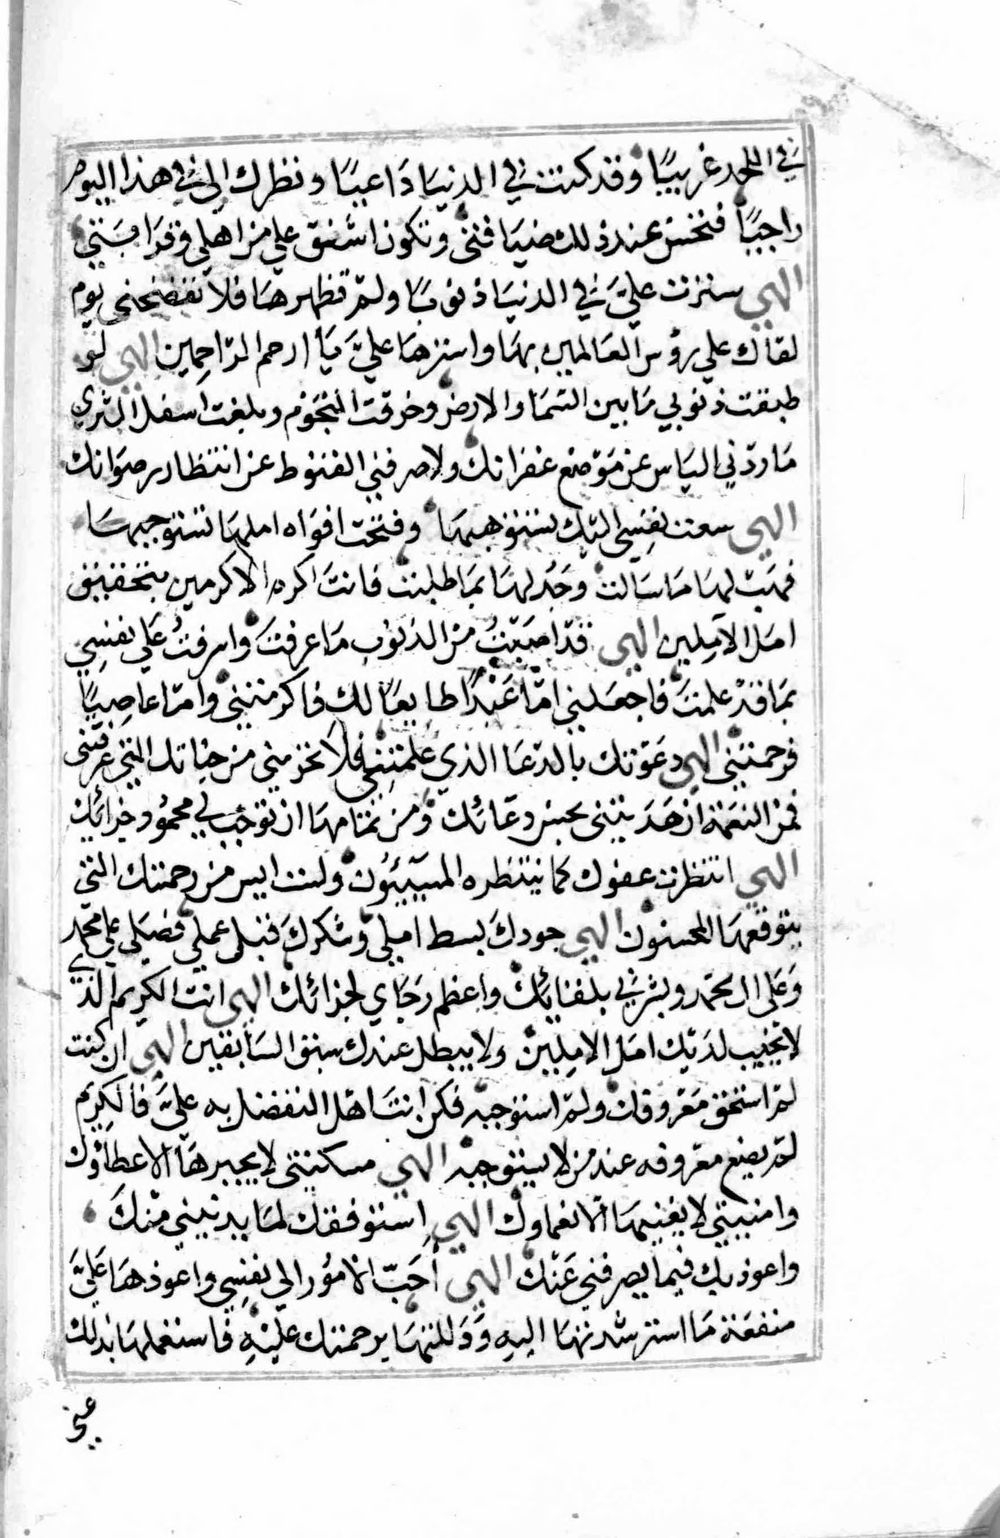 في اللحد غريبًا وقد كنت في الدنيا داعيًا ونظرك الي في هذا اليوم
راجيًا فتحسن عند ذلك ضيافتي وتكون اشفق علي من اهلي وقرابتي
الهي سترت عليَّ في الدنيا ذنوبًا ولم تظهرها فلا تفضحني يوم
لقاك علي رؤس العالمين بها واسترها عليَّ يا ارحم الراحمين الهي لو
طبقت ذنوبي ما بين السما والارض وخرقت النجوم وبلغت اسفل الثري
ما ردني الياس عن موضع غفرانك ولا صرفني القنوط عن انتظار رضوانك
الهي سعت نفسي اليك تستوهبها وفتحت افواه املها تستوجبها
فهب لها ما سالت وجد لها بما طلبت فانت اكرم الاكرمين بتحقيق
امل الآملين الهي قد اصبت من الذنوب ما عرفت واسرفت علي نفسي
بما قد علمت فاجعلني اما عبدًا طايعا لك فاكرمتني واما عاصيًا
فرحمتني الهي دعوتك بالدعا الذي علمتني فلا تحرمني من حياتك التي عرفتني
فمن النعمة ان هديتني بحسن دعائك ومن تمامها ان توجب لي محمود جزائك
الهي انتظرت عفوك كما ينتظره المسيئون ولست ايس من رحمتك التي
يتوقعها المحسنون الهي جودك بسط املي وشكرك قبل عملي فصلي علي محمد
وعلى ال محمد وبشرني بلقائك واعظم رجاي لجزائك الهي انت الكريم الذي
لا يخيب لديك امل الاملين ولا يبطل عندك سبق السابقين الهي ان كنت
لم استحق معروفك ولم استوجبه فكن انت اهل التفضل به عليَّ فالكريم
لم يضع معروفه عند من لا يستوجبه الهي مسكنتي لا يجبرها الا عطاؤك
وامنيتي لا يغنيها الا نعماوك الهي استوفقك لما يدنيني منك
واعوذ بك فيما يصرفني عنك الهي أحب الامور الي نفسي واعوذها عليَّ
منفعة ما استرشدتها اليه ودللتها برحمتك عليه فاستعملها بذلك
عني